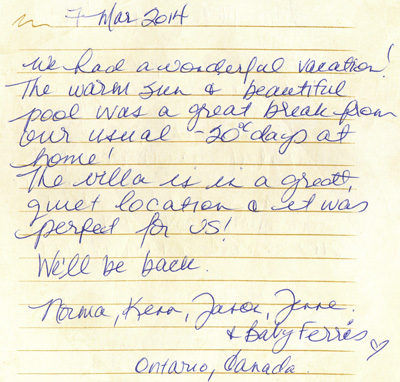 7 Mar 2014
We had a wonderful vacation!
The warm sun & beautiful
pool was a great break from
our usual -20° days at
home!
The villa is in a great,
quiet location & it was
perfect for us!
We'll be back.
Norma, Kenn, Jason, Jenne
& Baby Ferris ♡
Ontario, Canada